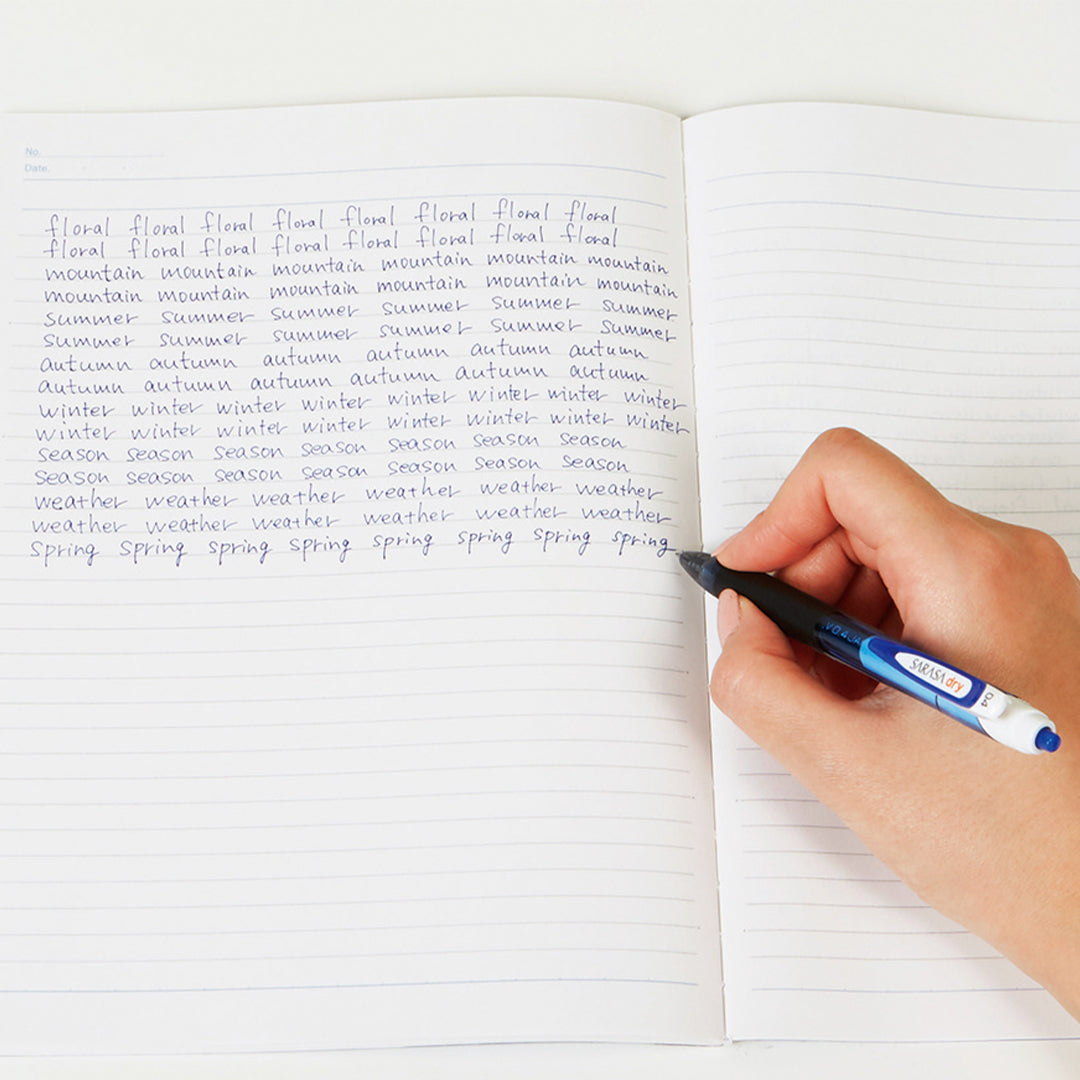 No.
Date.
floral floral floral floral floral floral floral floral
floral floral floral floral floral floral floral floral
mountain mountain mountain mountain mountain mountain
mountain mountain mountain mountain mountain mountain
summer summer summer summer summer summer
summer summer summer summer summer summer
autumn autumn autumn autumn autumn autumn
autumn autumn autumn autumn autumn autumn
winter winter winter winter winter winter winter winter
winter winter winter winter winter winter winter winter
season season season season season season season
season season season season season season season
weather weather weather weather weather weather
weather weather weather weather weather weather
spring spring spring spring spring spring spring spring
SARASA dry 0.4